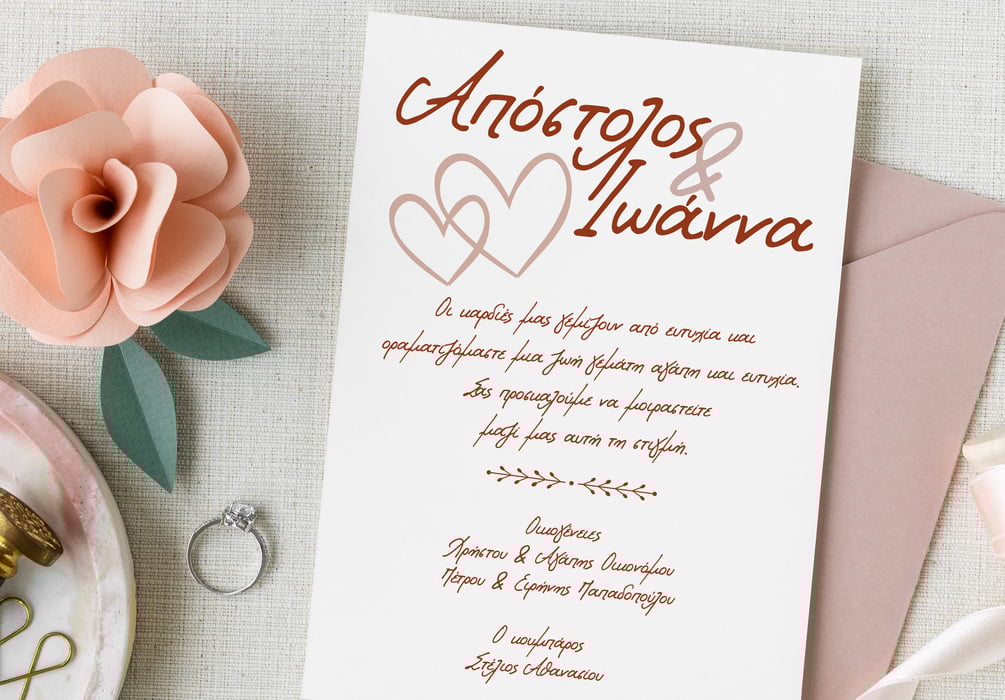 Απόστολος
&
Ιωάννα
Οι καρδιές μας γεμίζουν από ευτυχία και
οραματιζόμαστε μια ζωή γεμάτη αγάπη και ευτυχία.
Σας προσκαλούμε να μοιραστείτε
μαζί μας αυτή τη στιγμή.
Οικογένειες
Χρήστου & Αγάπης Οικονόμου
Πέτρου & Ειρήνης Παπαδοπούλου
Ο κουμπάρος
Στέλιος Αθανασίου